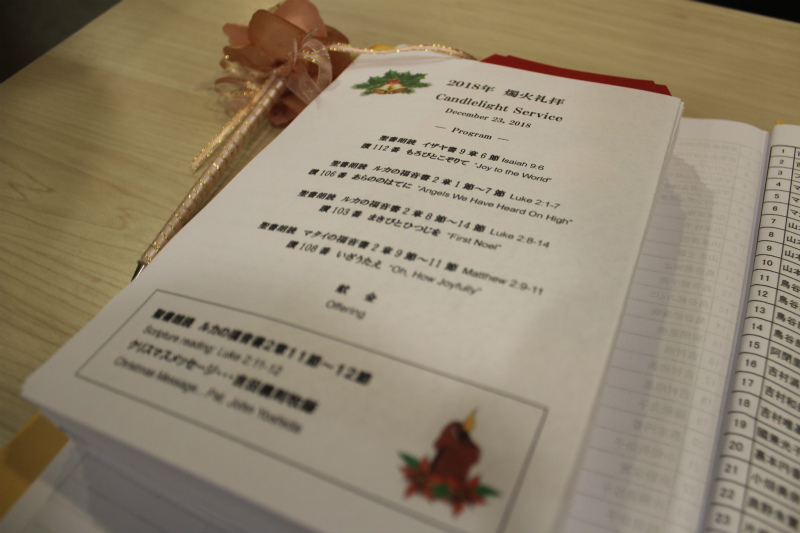 2018年 燭火礼拝
Candlelight Service
December 23, 2018
— Program —
聖書朗読 イザヤ書9章6節 Isaiah 9:6
讃112番 もろびとこぞりて "Joy to the World"
聖書朗読 ルカの福音書2章1節～7節 Luke 2:1-7
讃106番 あらののはてに "Angels We Have Heard On High"
聖書朗読 ルカの福音書2章8節～14節 Luke 2:8-14
讃103番 まきびとひつじを "First Noel"
聖書朗読 マタイの福音書2章9節～11節 Matthew 2:9-11
讃108番 いざうたえ "Oh, How Joyfully"
献金
Offering
聖書朗読 ルカの福音書2章11節～12節
Scripture reading: Luke 2:11-12
クリスマスメッセージ・・・吉田義則牧師
Christmas Message... Pst. John Yoshida
1
2
3
4
5
6
7 山
8 山本
9 山本
10 山本
11 鳥谷
12 鳥谷
13 鳥谷
14 鳥谷
15 阿閉
16 吉村
17 吉村和
18 吉村
19
20
21 小畑
22 奥野
23